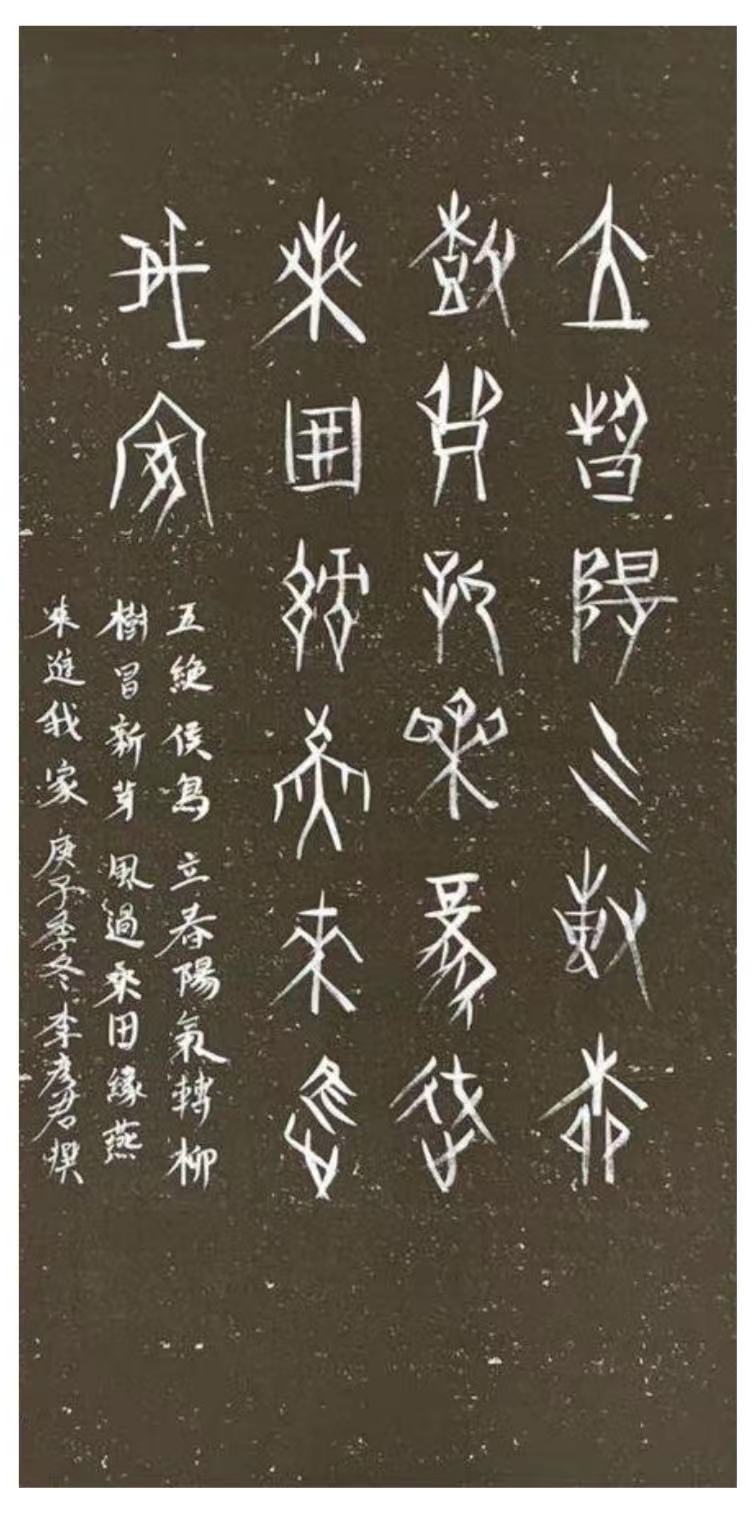 立春陽气轉柳
樹冒新芽風過
桑田緣燕來進
我家
五絶侯鳥立春陽氣轉柳
樹冒新芽風過桒田緣燕
來進我家庚子季冬李彦君撰